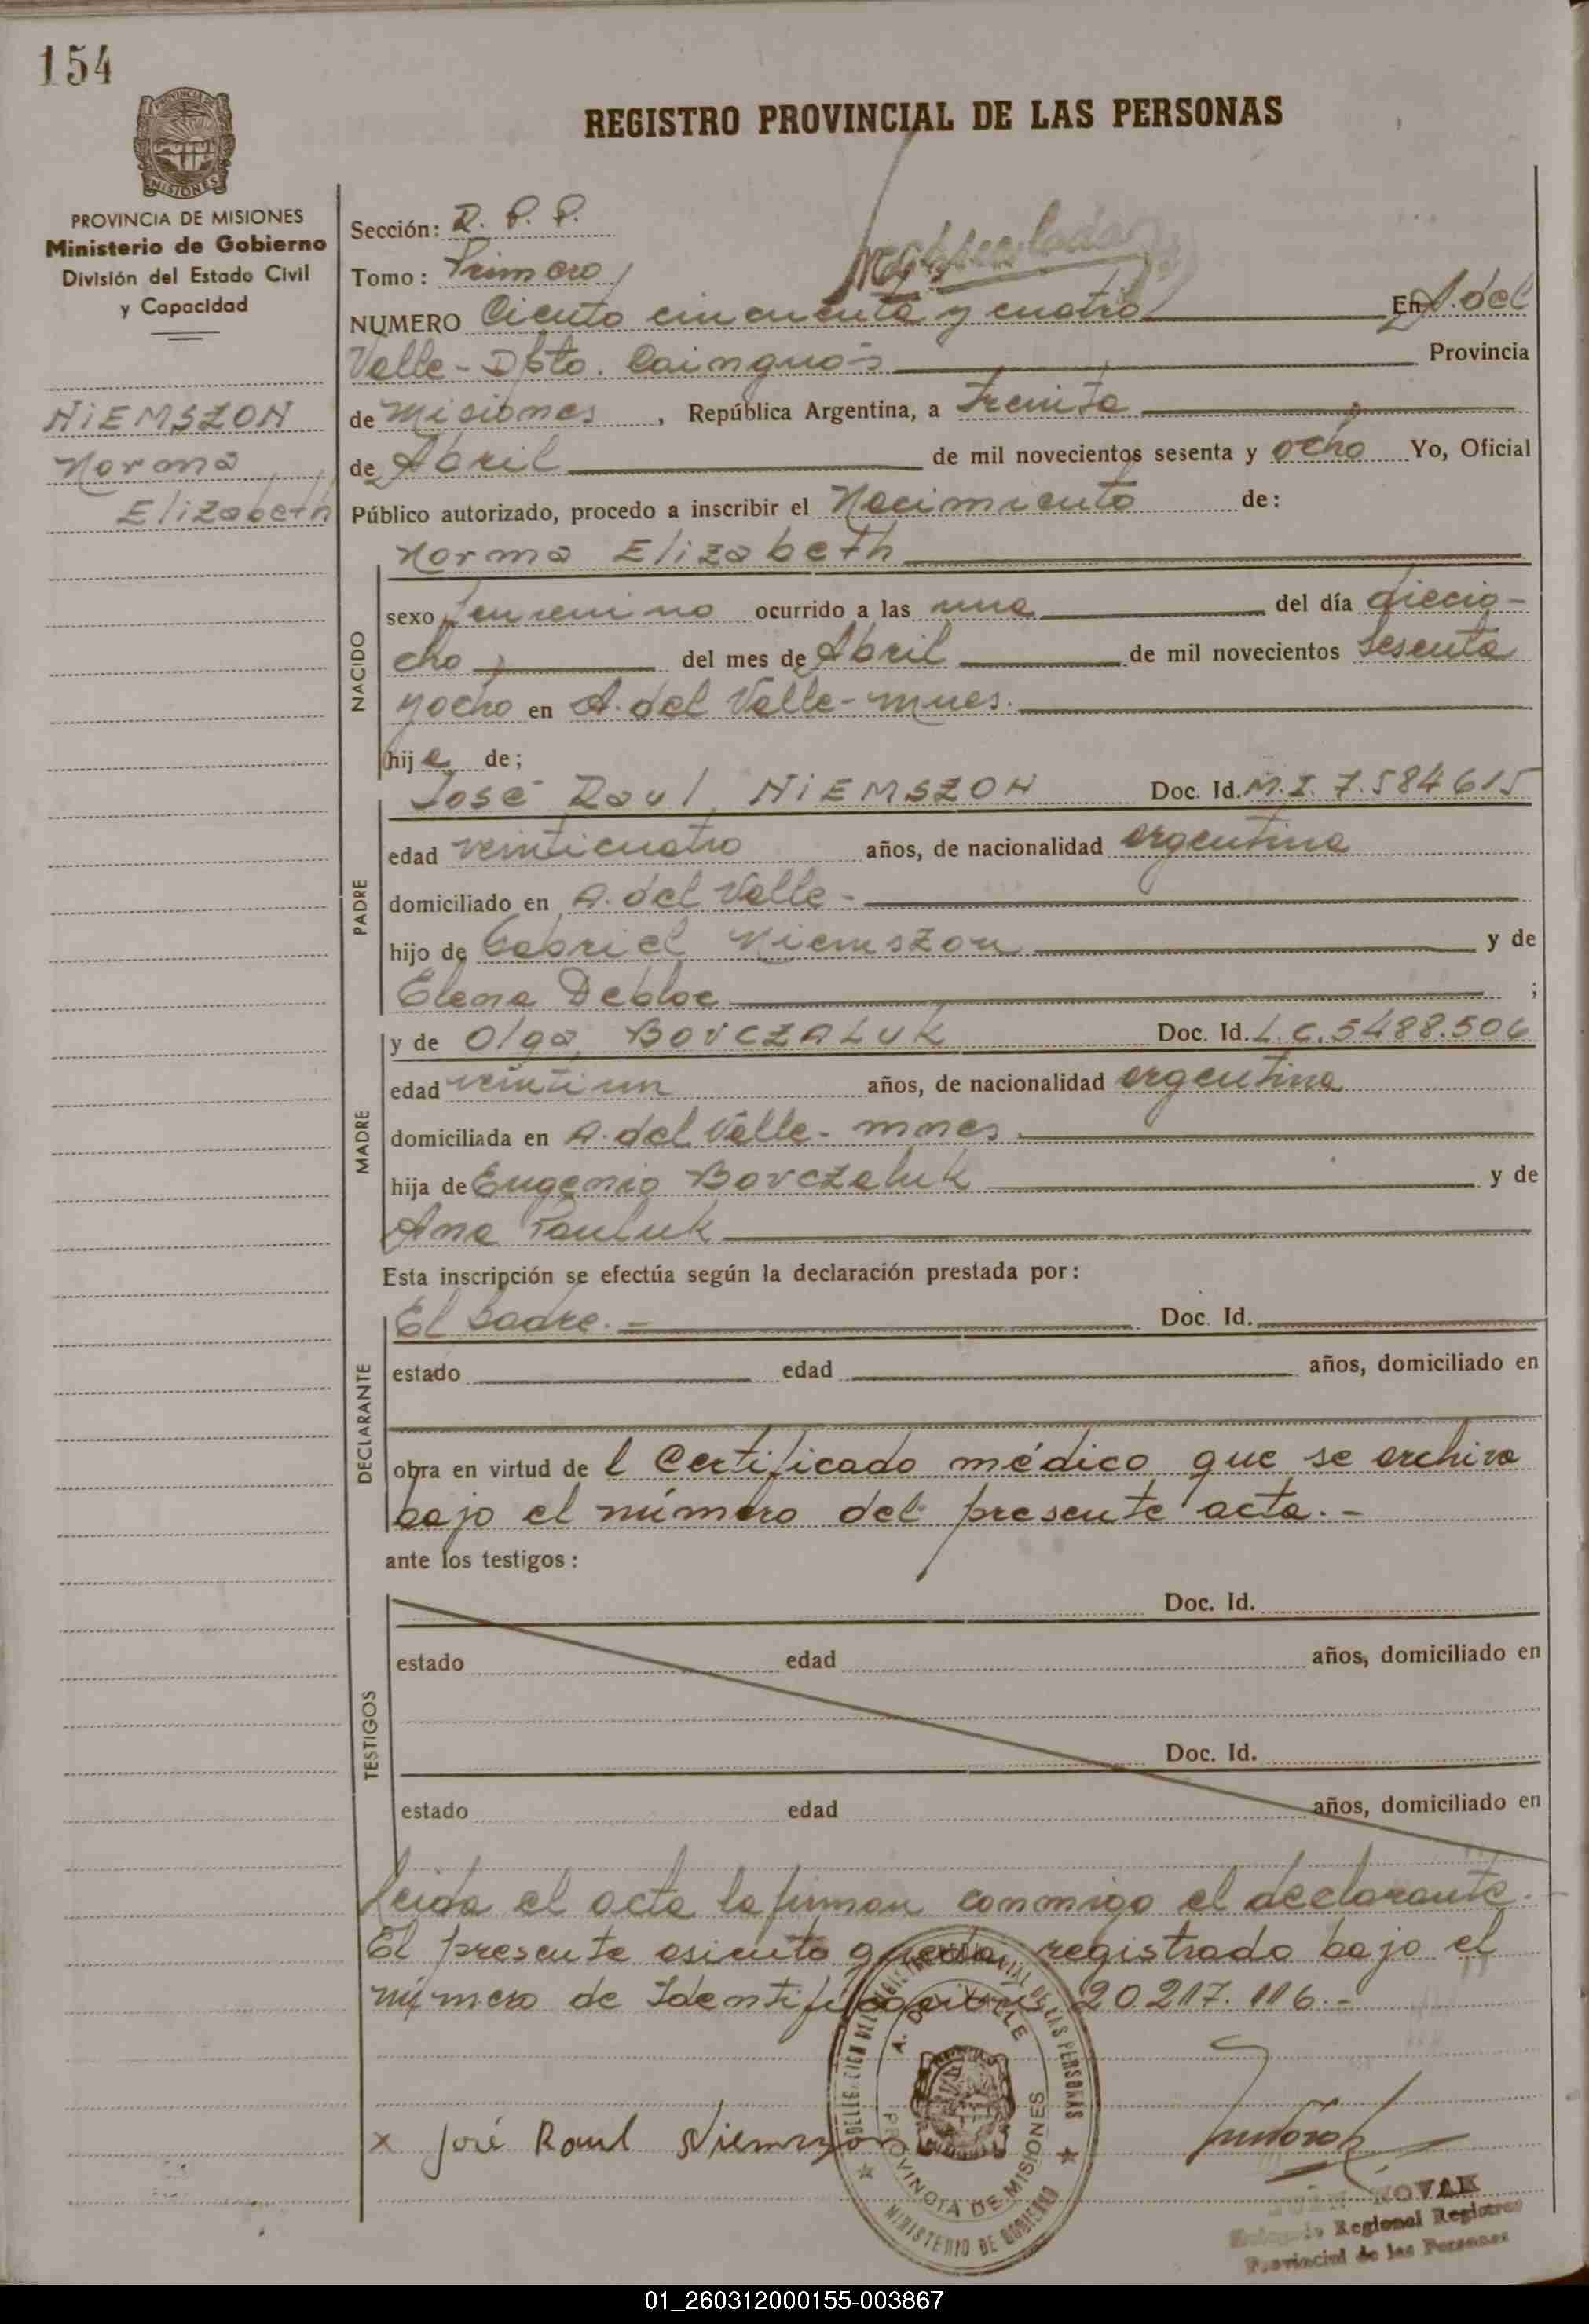 154
REGISTRO PROVINCIAL DE LAS PERSONAS
MISIONES
PROVINCIA DE MISIONES
Ministerio de Gobierno
División del Estado Civil
y Capacidad
NiEMSZON
Norma
Elizabeth
Sección: R. P. P.
Tomo: Primero
NUMERO Ciento cincuenta y cuatro En A. del
Valle - Dpto. Cainguás Provincia
de Misiones, República Argentina, a treinta
de Abril de mil novecientos sesenta y ocho Yo, Oficial
Público autorizado, procedo a inscribir el Nacimiento de:
Norma Elizabeth
NACIDO
sexo femenino ocurrido a las una del día diecio-
cho del mes de Abril de mil novecientos sesenta
y ocho en A. del Valle - mnes.
hija de;
PADRE
José Raul NiEMSZON Doc. Id. M.I. 7.584615
edad veinticuatro años, de nacionalidad argentina
domiciliado en A. del Valle -
hijo de Gabriel Niemszon y de
Elena Debloc ;
MADRE
y de Olga BOVCZALUK Doc. Id. L.C. 5488.506
edad veintiun años, de nacionalidad argentina
domiciliada en A. del Valle - mnes.
hija de Eugenio Bovczaluk y de
Ana Pauluk
Esta inscripción se efectúa según la declaración prestada por:
DECLARANTE
El padre. = Doc. Id.
estado edad años, domiciliado en
obra en virtud de l Certificado médico que se archiva
bajo el número del presente acta. -
ante los testigos:
TESTIGOS
Doc. Id.
estado edad años, domiciliado en
Doc. Id.
estado edad años, domiciliado en
Leida el acta la firman conmigo el declarante.
El presente asiento queda registrado bajo el
número de Identificación 20217.116.-
x José Raul Niemszon
DELEGACION DEL REGISTRO PROVINCIAL DE LAS PERSONAS
A. DEL VALLE
PROVINCIA DE MISIONES
MINISTERIO DE GOBIERNO
JUAN NOVAK
Delegado Regional Registro
Provincial de las Personas
01_260312000155-003867